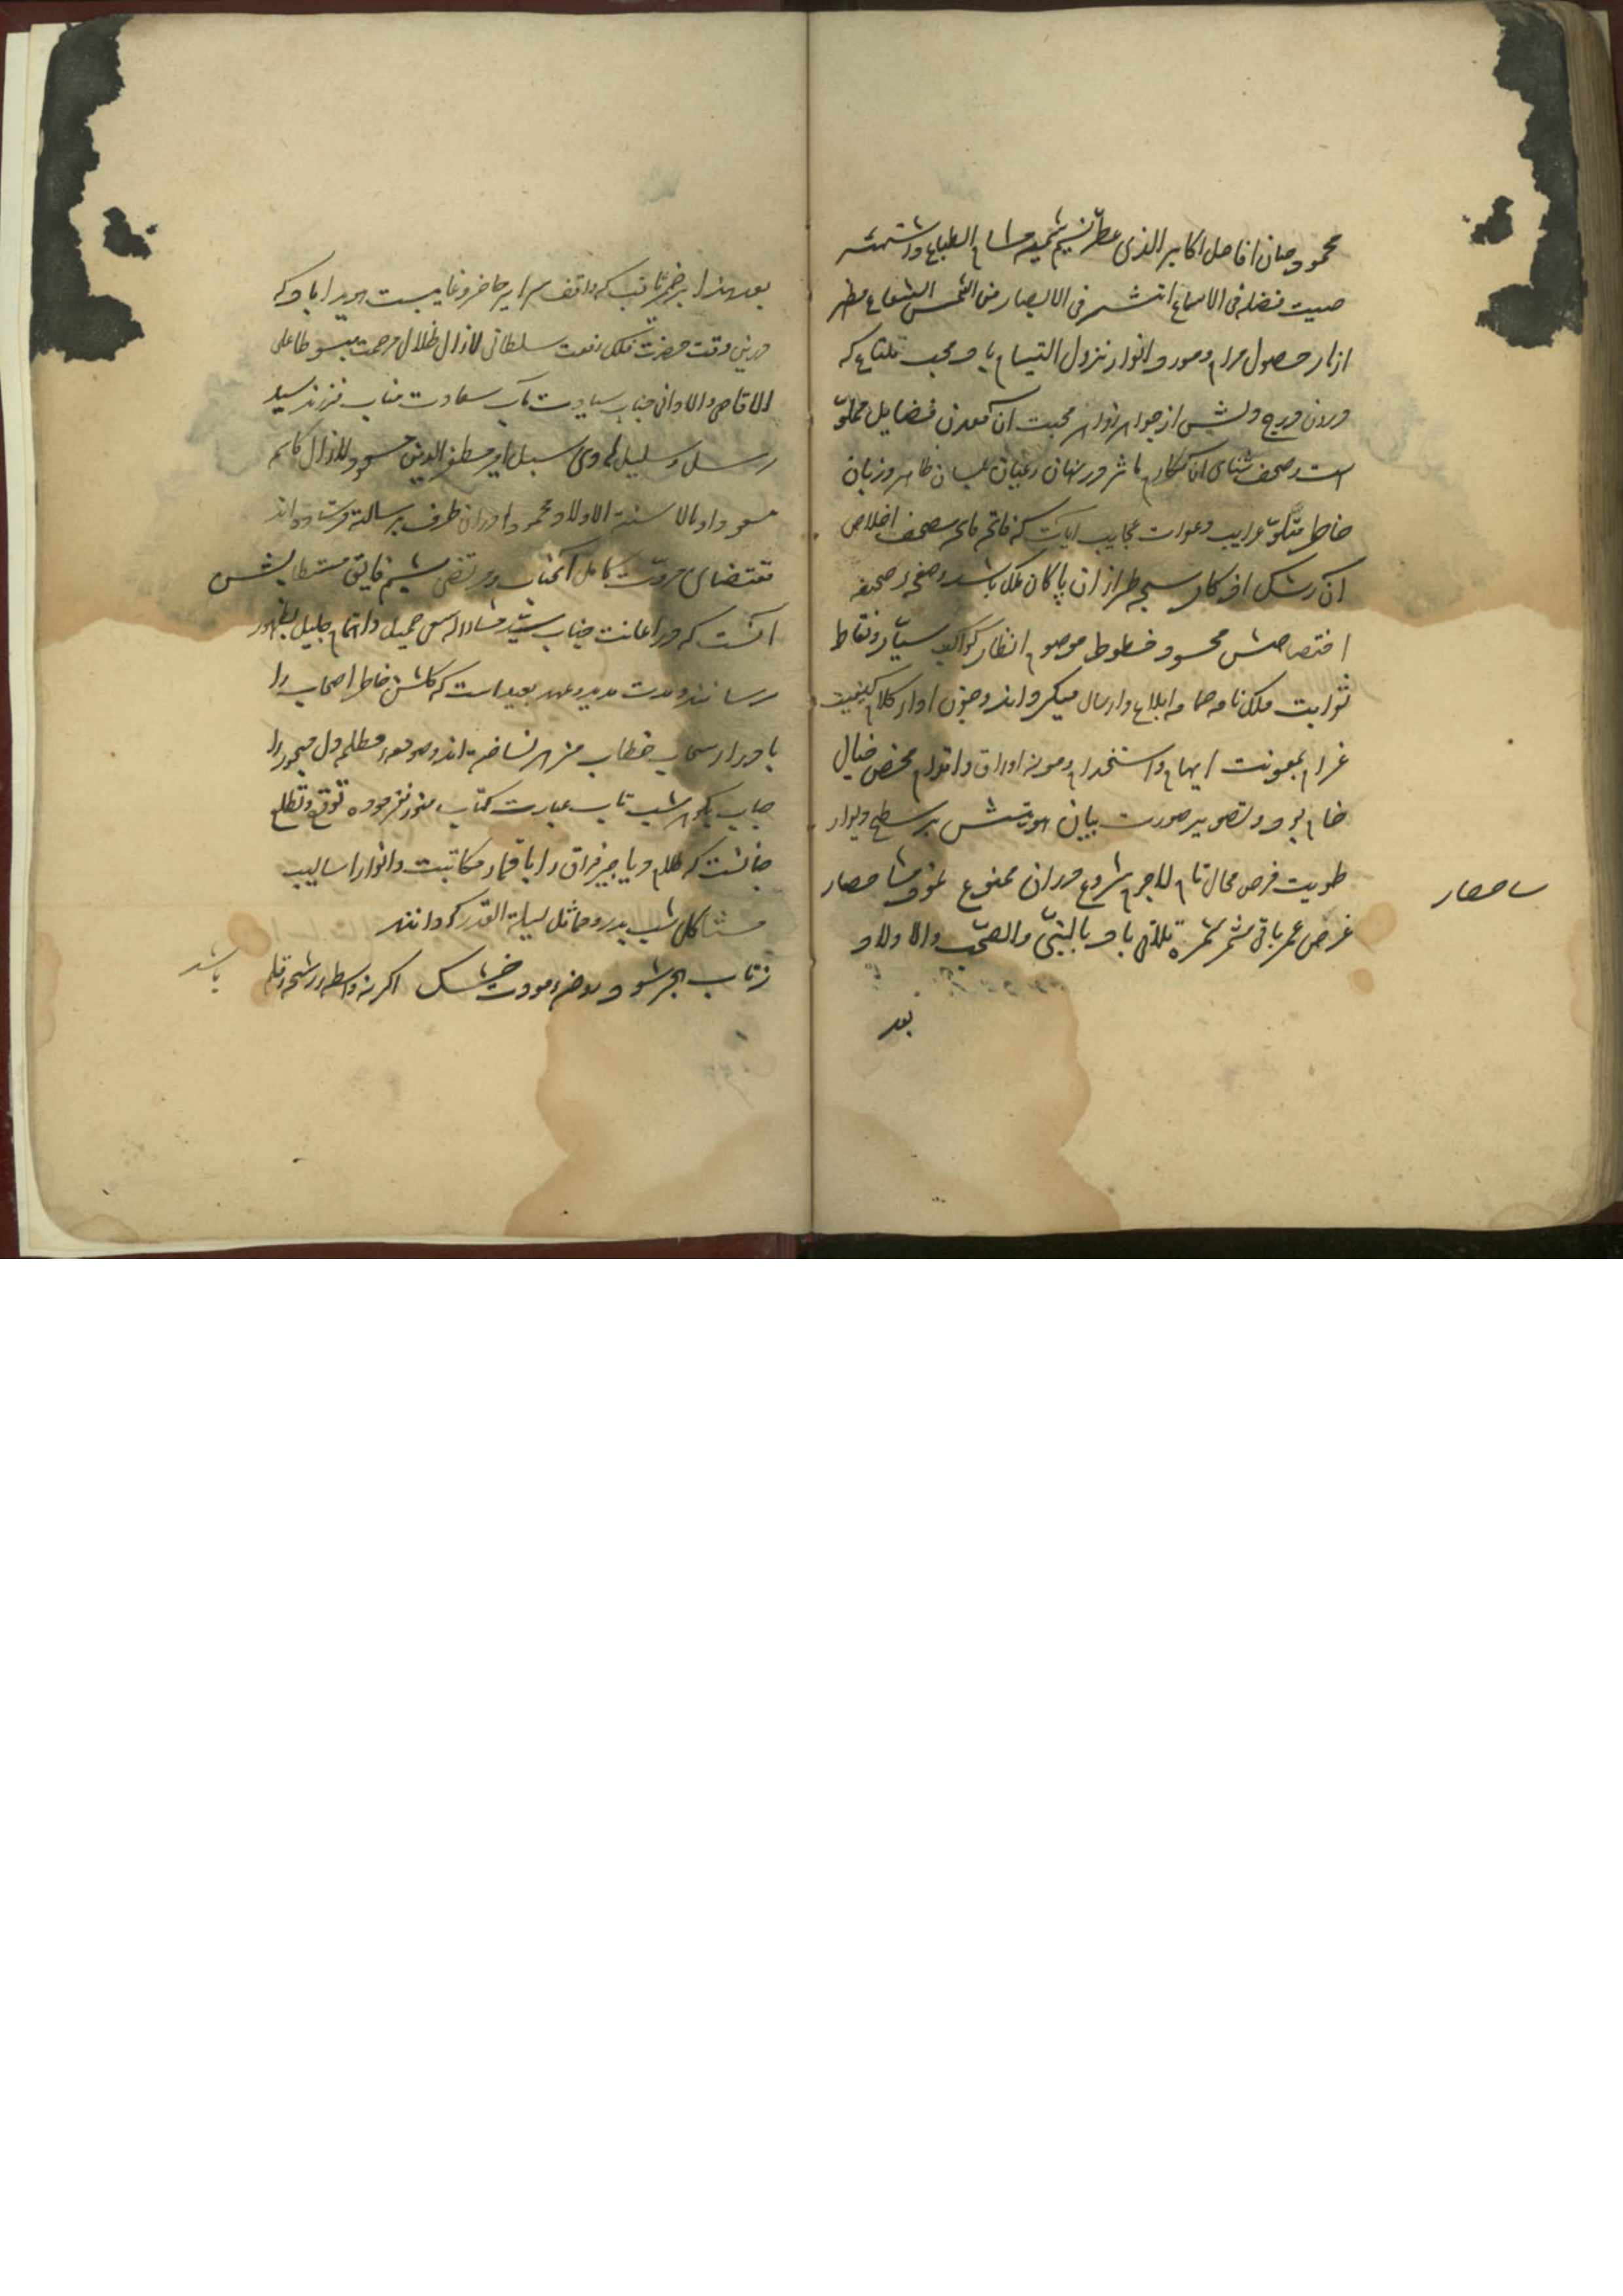 محمود میان افاضل اکابر الذی عطّر نسیم شمیمه مشام الطباع واشتهر
صیت فضله فی الاسماع اشتهر فی الابصار من الشمس الشعاع مطهر
ازنار حصول مرام و مورد انوار نزول التیام باد محب ملتاع که
درون درج دلش از جواهر زواهر محبت آن معدن فضایل مملوّ
است و صحف ثنای آن مکارم ماثر در نهان و عیان بلسان ظاهر و زبان
خاطر متلوّ غرایب دعوات عجایب آیات که فاتحه فایحه مصحف اخلاص
آن رشک افکار سبحه طرازان پاکان ملک باشد و صفحه صحیفه
اختصاصش محسود خطوط موصوم انظار کواکب سیّار و نقاط
ثوابت فلک نامه حمامه ابلاغ و ارسال میگرداند و چون ادوار کلام کیفیت
غرام بمعونت ابهام و استخدام و مونه اوراق و اقلام محض خیال
خام بود و تصویر صورت بیان هویتش بر سطح دیوار
طویت فرض محال تام لاجرم شروع در آن ممنوع نمود
ساحصار
غرض عمر باقی مثمر ثمره تلاقی باد بالنبیّ والصحب والاولاد
بعد
بعد هذا بر ضمیر ثاقب که واقف سرایر حاضر و غایبست هویدا باد که
درین وقت حضرت فلک رفعت سلطانی لازال ظلال مرحمته مبسوطا علی
الاقاصی والادانی جناب سیادت مآب سعادت مناب فرزند سید
رسل و سلیل هادی سبل امیر مظفر الدین لازال کاسمه
محمود را بدان طرف برسالت فرستاده اند
مقتضای مروّت کامل آنجناب و مرتضی شیم فایق مستطابش
آنست که در اعانت جناب سید مشار الیه سعی جمیل و اهتمام جلیل بظهور
رسانند و مدت مدید و عهد بعید است که گلشن خاطر اصحاب را
بامداد سحاب خطاب مزهر نساخته اند و صومعه مظلم دل مهجور را
بگوهر شب تاب عبارت کتاب منوّر نفرموده توقع و تطلع
چنانست که ظلام دیاجیر فراق را باقمار مکاتبت و انوار اسالیب
مشاکل شب بدر و مماثل لیلة القدر گردانند
زتاب هجر شود روضه مودت خشک اگر نه واسطه رشحه قلم
باشد